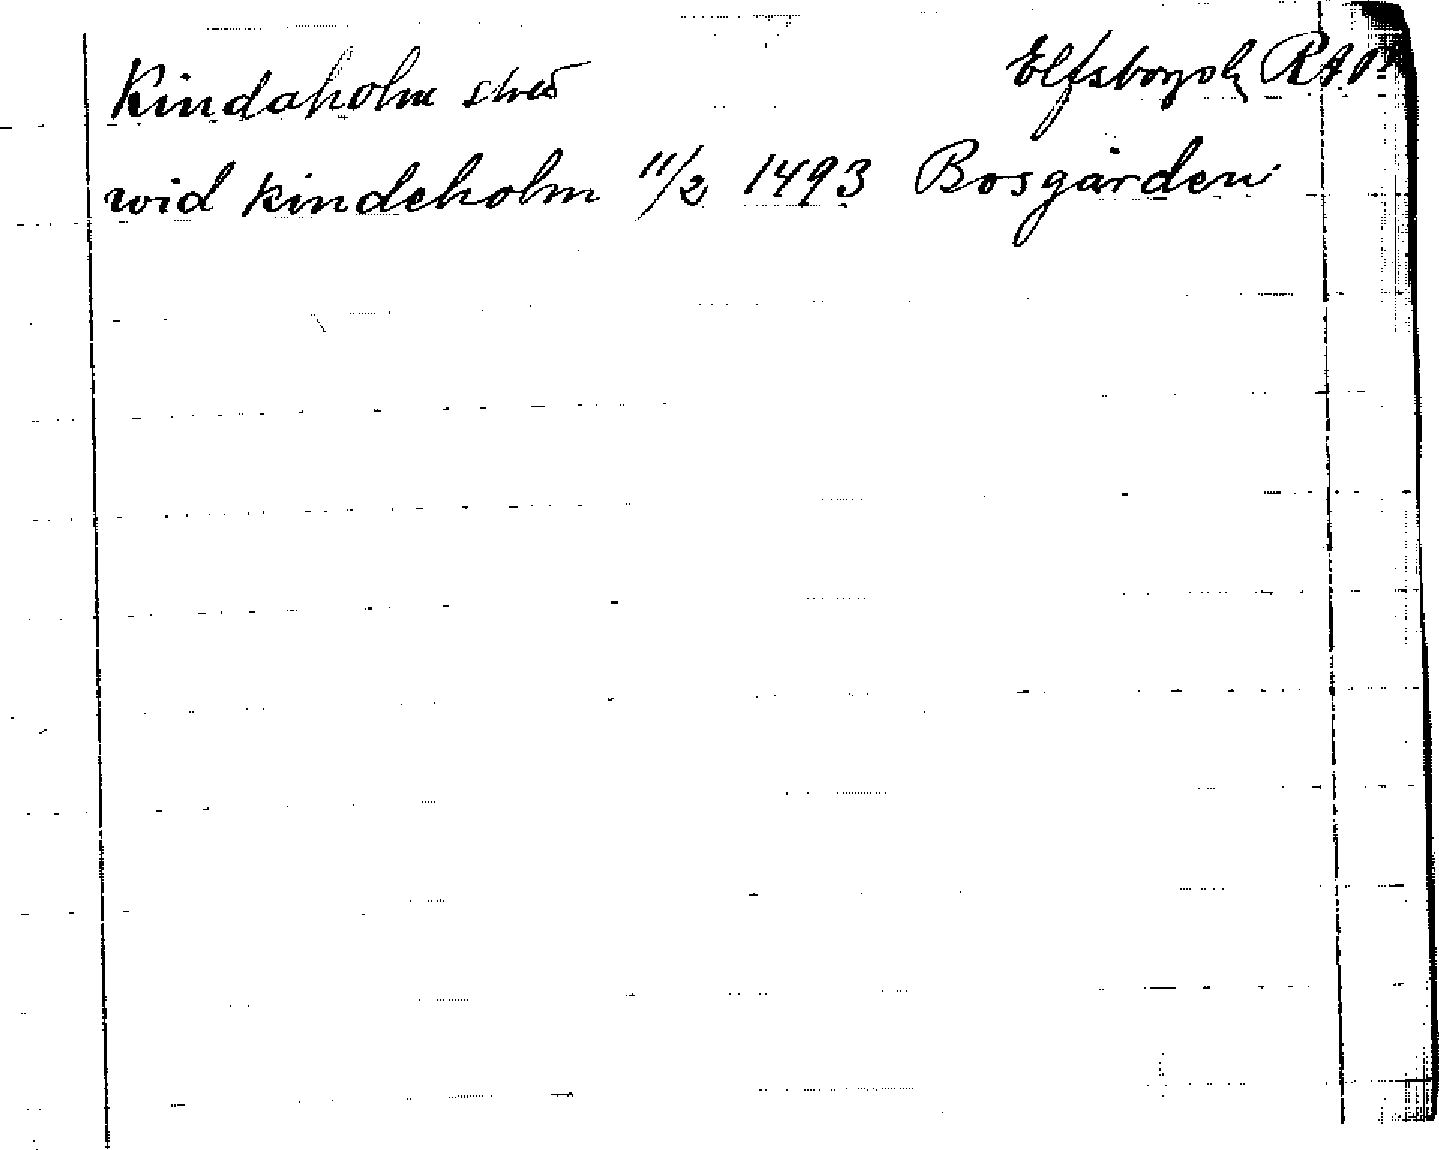 Kindaholm Elfsborgs l. RAp.
wid kindeholm 11/2 1493 Bosgården